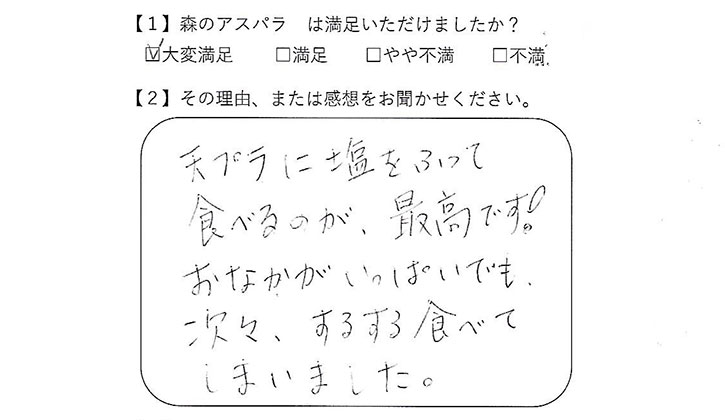 【1】森のアスパラ　は満足いただけましたか？
☑大変満足　□満足　□やや不満　□不満
【2】その理由、または感想をお聞かせください。
天プラに塩をふって
食べるのが、最高です!
おなかがいっぱいでも、
次々、するする食べて
しまいました。